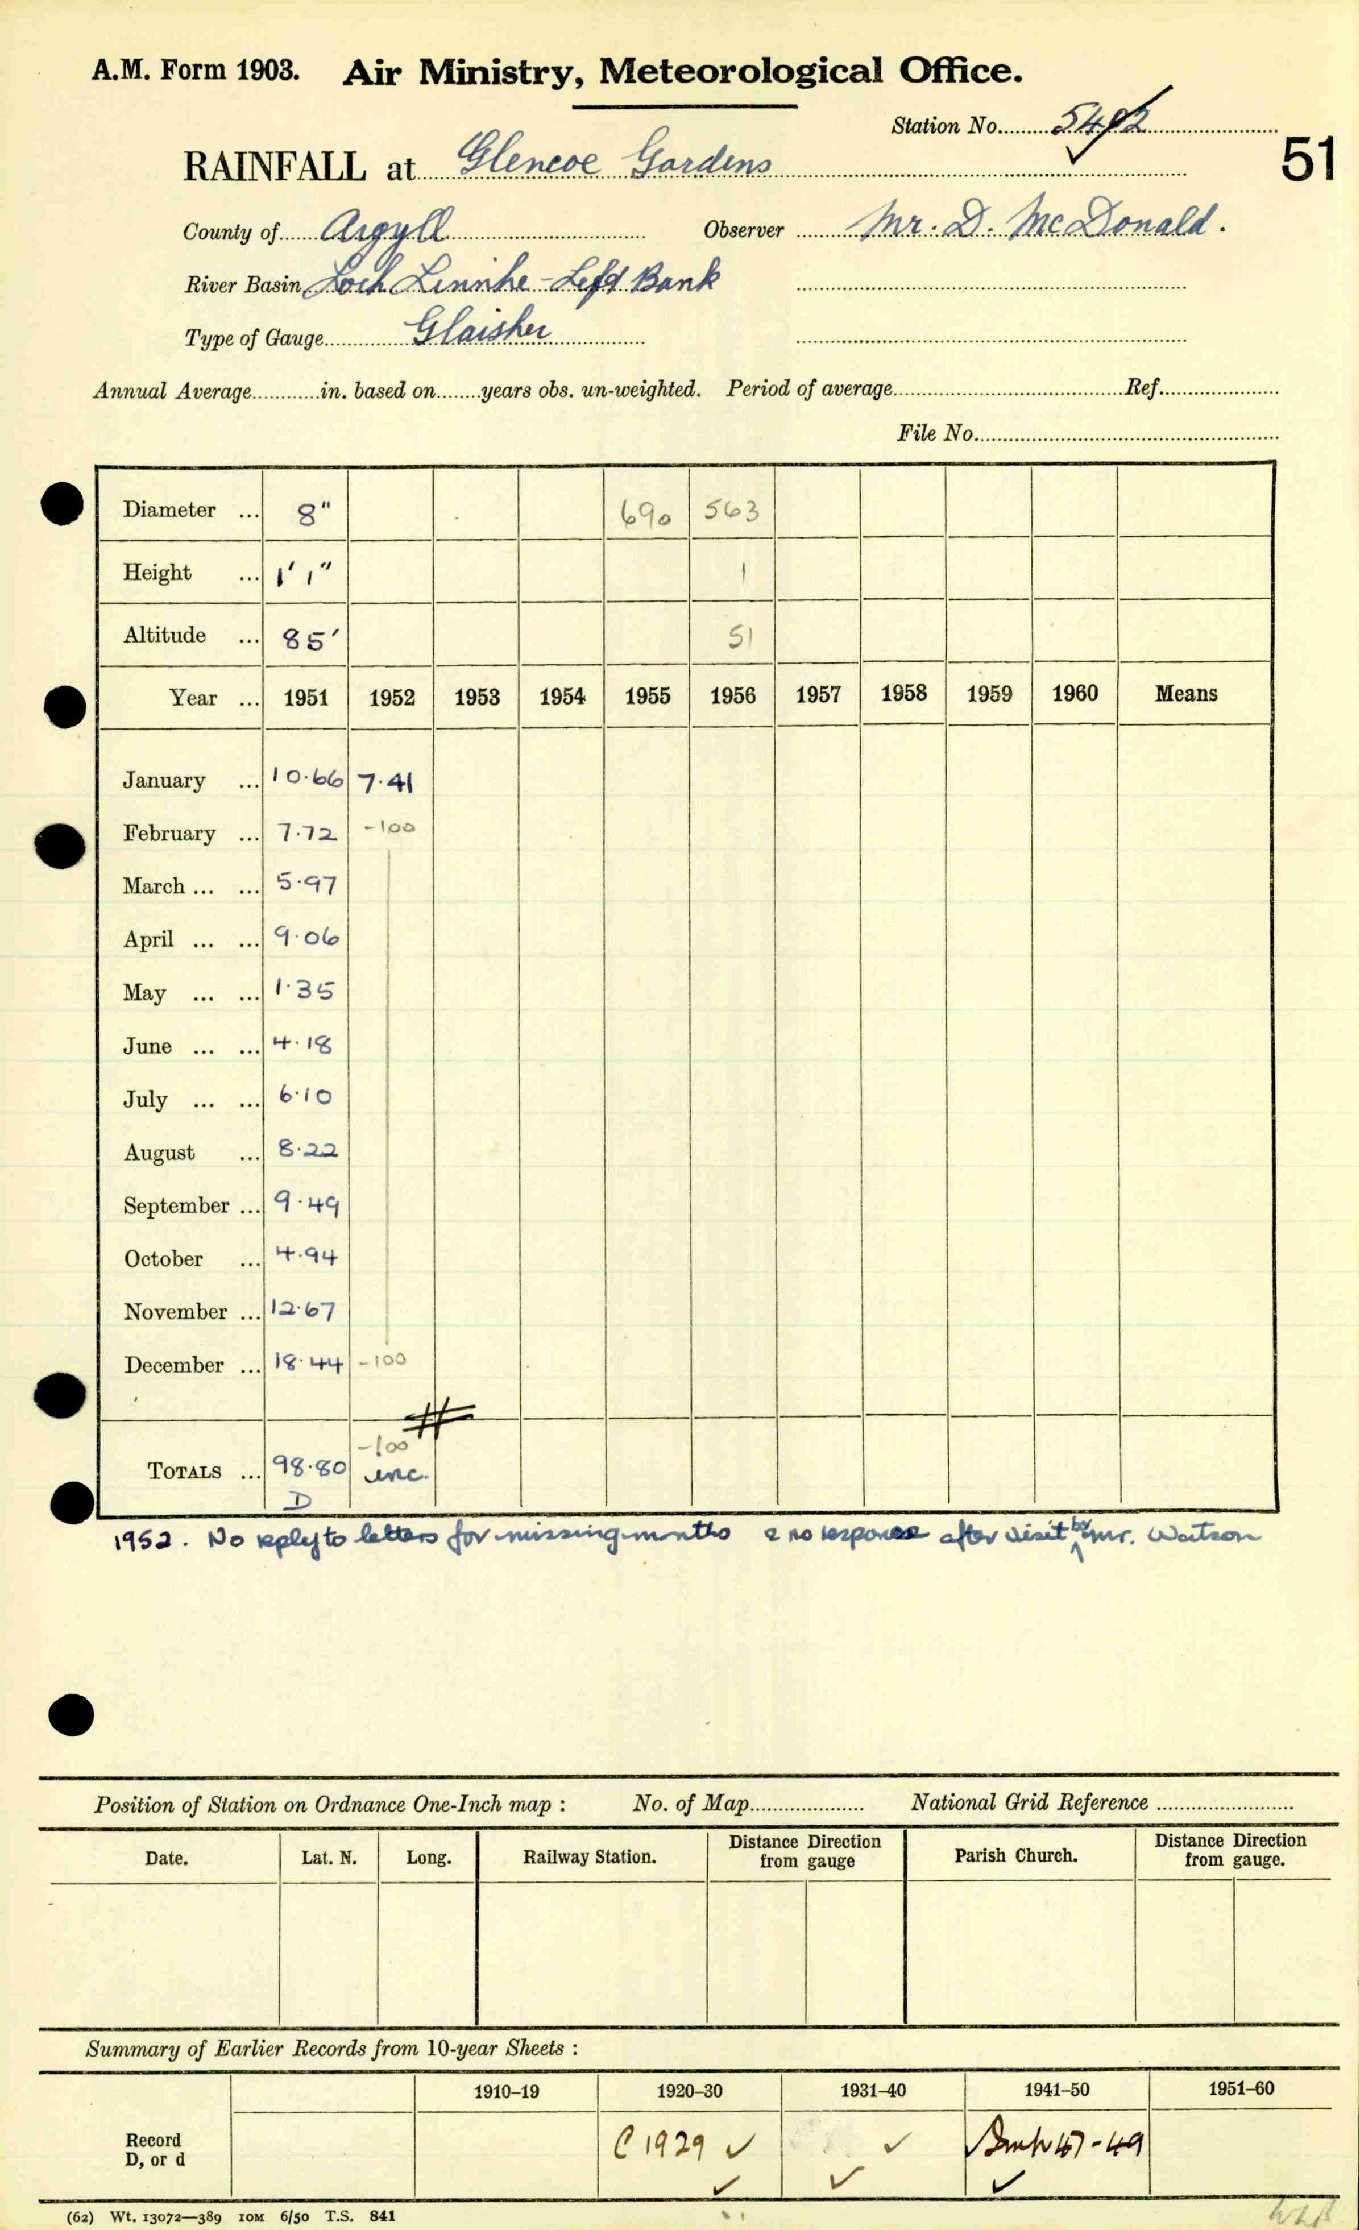 A.M. Form 1903. Air Ministry, Meteorological Office.
Station No. 5492
51
RAINFALL at Glencoe Gardens
County of Argyll Observer Mr. D. McDonald.
River Basin Loch Linnhe - Left Bank
Type of Gauge Glaisher
Annual Average in. based on years obs. un-weighted. Period of average Ref.
File No.
Diameter ... 8" 690 563
Height ... 1' 1" 1
Altitude ... 85' 51
Year ... 1951 1952 1953 1954 1955 1956 1957 1958 1959 1960 Means
January ... 10.66 7.41
February ... 7.72 -100
March ... ... 5.97
April ... ... 9.06
May ... ... 1.35
June ... ... 4.18
July ... ... 6.10
August ... 8.22
September ... 9.49
October ... 4.94
November ... 12.67
December ... 18.44 -100
-100
TOTALS ... 98.80 inc.
D
1952. No reply to letters for missing months & no response after visit by Mr. Watson
Position of Station on Ordnance One-Inch map : No. of Map National Grid Reference
Date. Lat. N. Long. Railway Station. Distance Direction from gauge Parish Church. Distance Direction from gauge.
Summary of Earlier Records from 10-year Sheets :
1910–19 1920–30 1931–40 1941–50 1951–60
Record C 1929 ✓ ✓ 47-49
D, or d ✓ ✓ ✓
(62) Wt. 13072—389 10M 6/50 T.S. 841